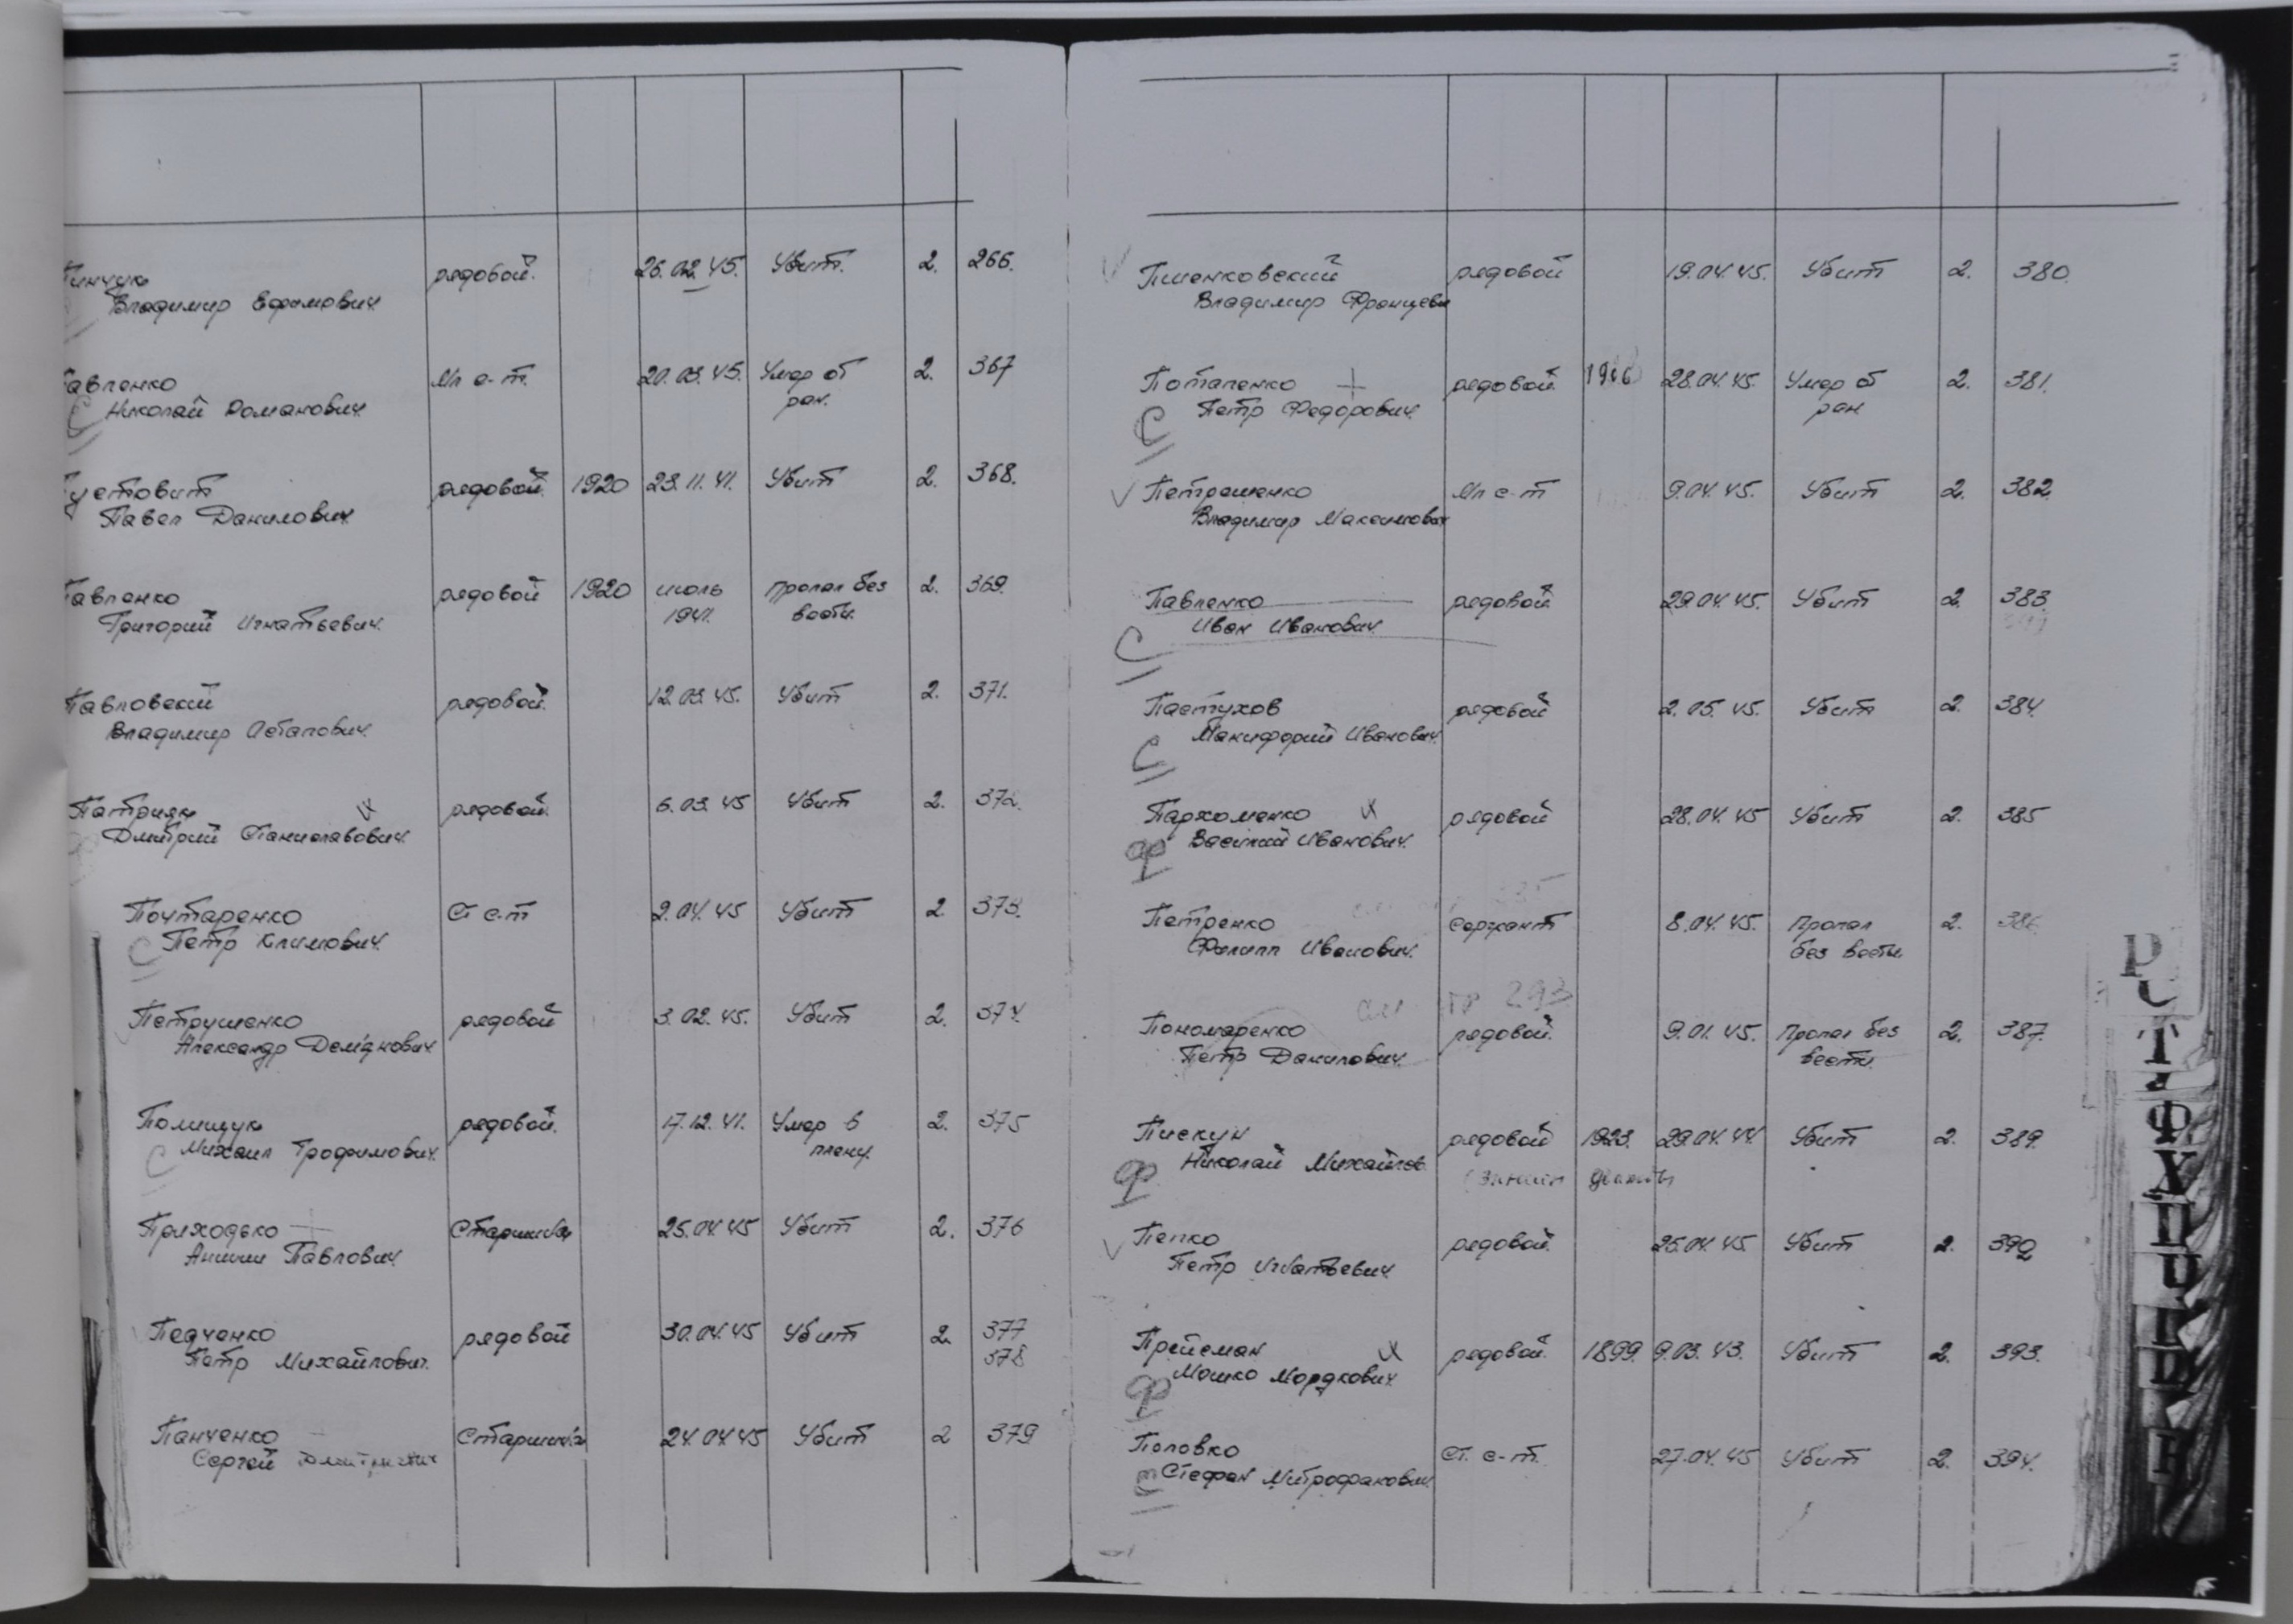 Пинчук рядовой. 26.02.45. Убит. 2. 266.
Владимир Ефимович.
Павленко Мл с-т. 20.03.45. Умер от 2. 367
С Николай Романович. ран.
Пустовит рядовой. 1920 23.11.41. Убит 2. 368.
Павел Данилович.
Павленко рядовой 1920 июль Пропал без 2. 369.
Григорий Игнатьевич. 1941. вести.
Павловский рядовой. 12.03.45. Убит 2. 371.
Владимир Остапович.
Патрияк рядовой. 6.03.45 Убит 2. 372.
Дмитрий Станиславович.
Почтаренко Ст с-т 2.04.45 Убит 2. 373.
С Петр Климович.
Петрушенко рядовой 3.02.45. Убит 2. 374.
Александр Дем'янович
Полищук рядовой. 17.12.41. Умер в 2. 375
С Михаил Трофимович. плену.
Приходько Старшина 25.04.45 Убит 2. 376
Павлович.
Педченко рядовой 30.04.45 Убит 2. 377
Петр Михайлович. 378
Панченко Старшина 24.04.45 Убит 2 379
Сергей Дмитриевич
Пшенковский рядовой 19.04.45. Убит 2. 380.
Владимир Францеви
Потапенко рядовой. 28.04.45. Умер от 2. 381.
С Петр Федорович. ран.
Петрашенко Мл с-т 9.04.45. Убит 2. 382.
Владимир Максимович
Павленко рядовой. 29.04.45. Убит 2. 383.
С Иван Иванович.
Пастухов рядовой 2.05.45. Убит 2. 384.
С Макифорий Иванович.
Пархоменко рядовой 28.04.45 Убит 2. 385
Ф Василий Иванович.
Петренко сержант 8.04.45. Пропал 2. 386.
Филипп Иванович. без вести.
293
Пономаренко рядовой. 9.01.45. Пропал без 2. 387.
Петр Данилович. вести.
Пискун рядовой 1923. 29.04.44 Убит 2. 389.
Ф Николай Михайлов.
Пепко рядовой. 25.04.45 Убит 2. 390
Петр Игнатьевич.
Прейсман рядовой. 1899. 9.03.43. Убит 2. 393.
Ф Мошко Мордкович.
Половко Ст. с-т. 27.04.45 Убит 2. 394.
С Стефан Митрофанович.
Р
С
Т
Ф
Х